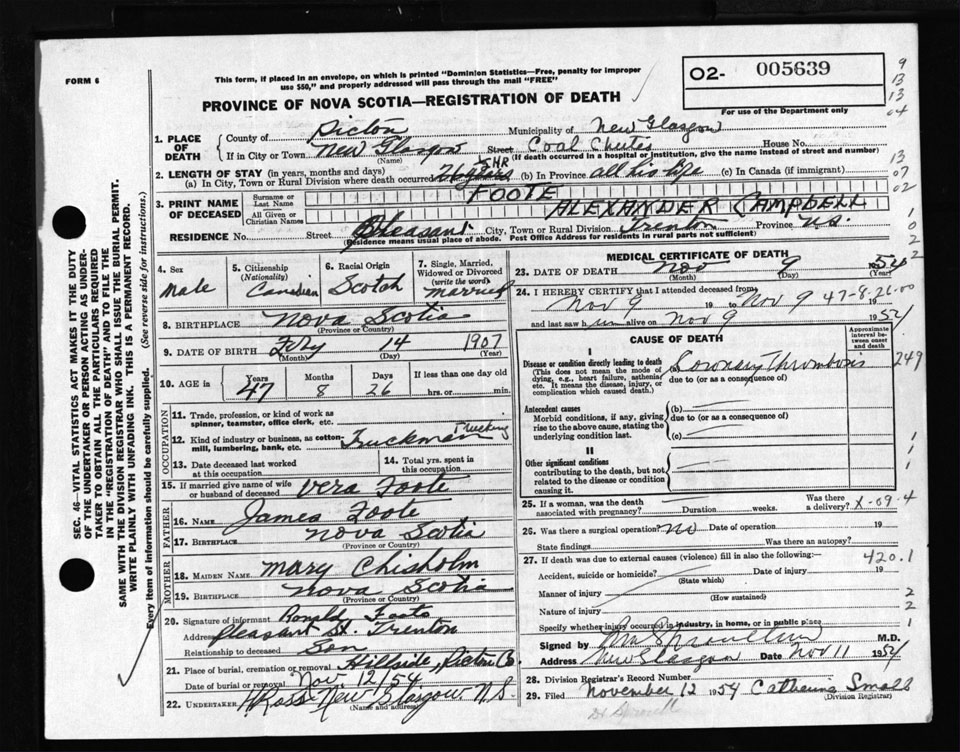 FORM 6
This form, if placed in an envelope, on which is printed "Dominion Statistics—Free, penalty for improper
use $50," and properly addressed will pass through the mail "FREE"
PROVINCE OF NOVA SCOTIA—REGISTRATION OF DEATH
O2- 005639
For use of the Department only
9
13
13
04
13
07
02
1
0
2
2
1. PLACE OF DEATH
County of Pictou Municipality of New Glasgow
If in City or Town New Glasgow Street Coal Chutes House No.
(Name) (If death occurred in a hospital or institution, give the name instead of street and number)
2. LENGTH OF STAY (in years, months and days)
(a) In City, Town or Rural Division where death occurred 5 HR (b) In Province all his life (c) In Canada (if immigrant)
3. PRINT NAME OF DECEASED
Surname or Last Name FOOTE
All Given or Christian Names ALEXANDER CAMPBELL
RESIDENCE No. Street Pleasant City, Town or Rural Division Trenton Province N.S.
(Residence means usual place of abode. Post Office Address for residents in rural parts not sufficient)
4. Sex Male
5. Citizenship (Nationality) Canadian
6. Racial Origin Scotch
7. Single, Married, Widowed or Divorced (write the word) Married
8. BIRTHPLACE Nova Scotia
(Province or Country)
9. DATE OF BIRTH 14 1907
(Month) (Day) (Year)
10. AGE in Years 47 Months 8 Days 26 If less than one day old hrs. or min.
OCCUPATION
11. Trade, profession, or kind of work as spinner, teamster, office clerk, etc.
12. Kind of industry or business, as cotton-mill, lumbering, bank, etc. Truckman Trucking
13. Date deceased last worked at this occupation
14. Total yrs. spent in this occupation
15. If married give name of wife or husband of deceased Vera Foote
FATHER
16. NAME James Foote
17. BIRTHPLACE Nova Scotia
(Province or Country)
MOTHER
18. MAIDEN NAME Mary Chisholm
19. BIRTHPLACE Nova Scotia
(Province or Country)
20. Signature of informant Ronald Foote
Address Pleasant St. Trenton
Relationship to deceased Son
21. Place of burial, cremation or removal Hillside, Pictou Co
Date of burial or removal Nov 12/54
22. UNDERTAKER H Ross New Glasgow N.S.
MEDICAL CERTIFICATE OF DEATH
23. DATE OF DEATH Nov 9 1954
(Month) (Day) (Year)
24. I HEREBY CERTIFY that I attended deceased from
Nov 9 19 to Nov 9 47-8-26-00 19
and last saw him alive on Nov 9 1954
CAUSE OF DEATH
Approximate interval between onset and death
I
Disease or condition directly leading to death
(This does not mean the mode of dying, e.g., heart failure, asthenia, etc. It means the disease, injury, or complication which caused death.)
Coronary Thrombosis 249
due to (or as a consequence of)
Antecedent causes
Morbid conditions, if any, giving rise to the above cause, stating the underlying condition last.
(b)
due to (or as a consequence of)
(c)
II
Other significant conditions
contributing to the death, but not related to the disease or condition causing it.
1
1
1
25. If a woman, was the death associated with pregnancy? Duration weeks. Was there a delivery? X-09-4
26. Was there a surgical operation? No Date of operation 19
State findings Was there an autopsy?
27. If death was due to external causes (violence) fill in also the following:— 420.1
Accident, suicide or homicide? Date of injury 19
(State which)
Manner of injury 2
(How sustained)
Nature of injury 2
Specify whether injury occurred in industry, in home, or in public place 1
Signed by M.D.
Address New Glasgow Date Nov 11 1954
28. Division Registrar's Record Number
29. Filed November 12 1954 Catherine Small
(Division Registrar)
SEC. 46—VITAL STATISTICS ACT MAKES IT THE DUTY
OF THE UNDERTAKER OR PERSON ACTING AS UNDER-
TAKER TO OBTAIN ALL THE PARTICULARS REQUIRED
IN THE "REGISTRATION OF DEATH" AND TO FILE THE
SAME WITH THE DIVISION REGISTRAR WHO SHALL ISSUE THE BURIAL PERMIT.
WRITE PLAINLY WITH UNFADING INK. THIS IS A PERMANENT RECORD.
Every item of information should be carefully supplied. (See reverse side for instructions.)